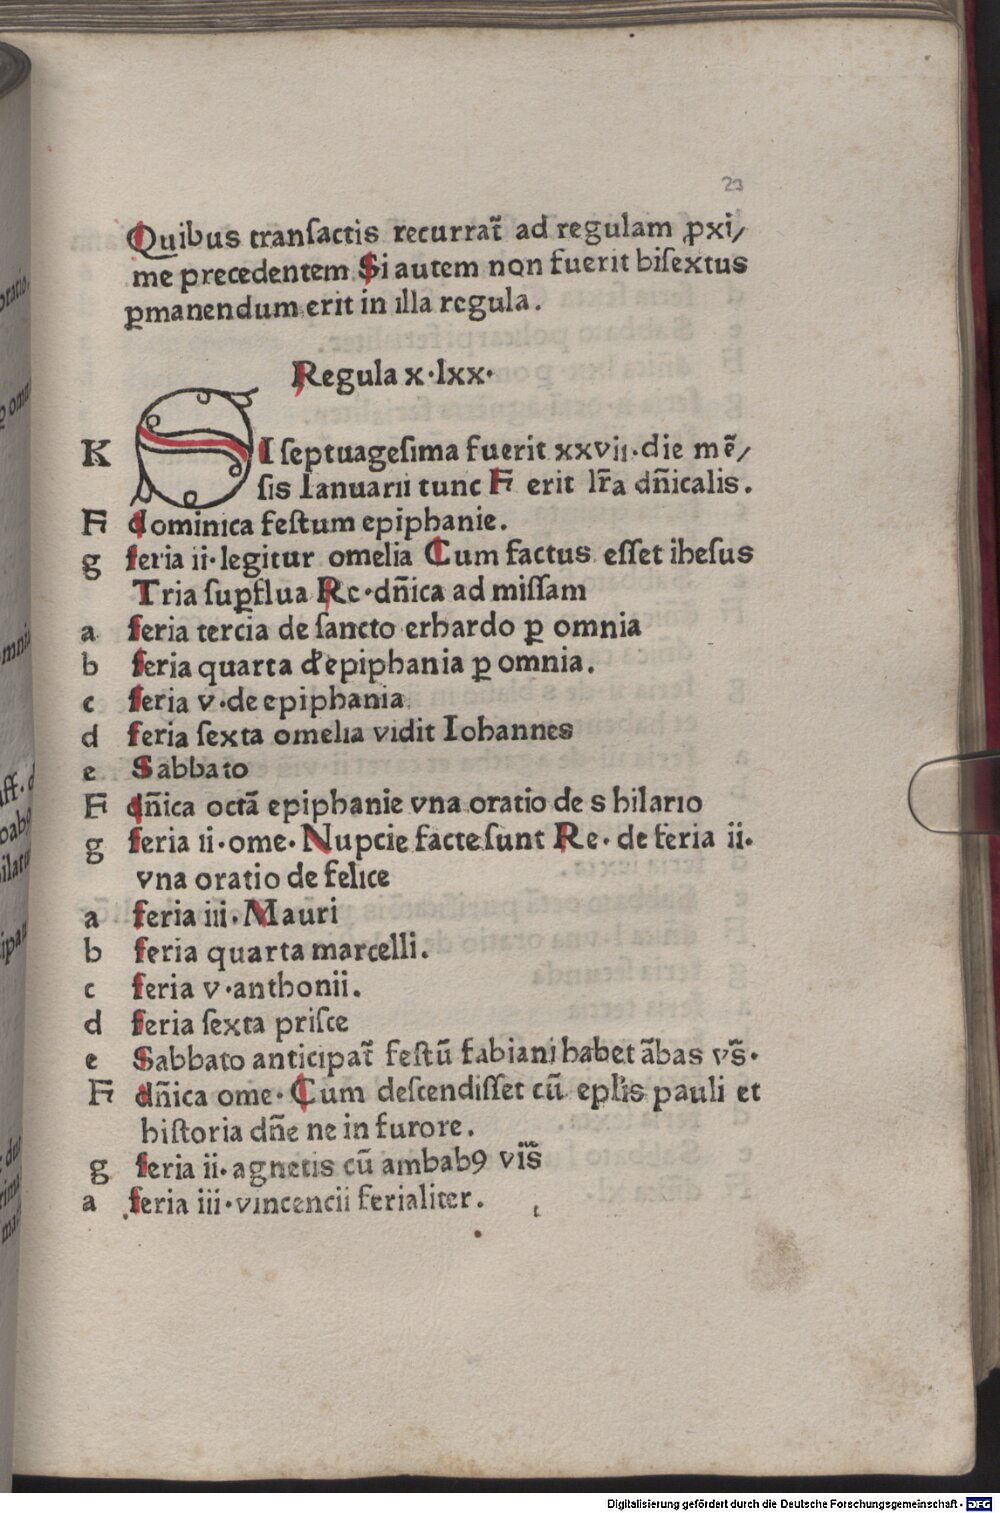 23
Quibus tranſactis recurrat̃ ad regulam ꝓxi/
me precedentem Si autem non fuerit biſextus
ꝑmanendum erit in illa regula.
Regula x·lxx·
K SI ſeptuageſima fuerit xxvii·die mẽ/
ſis Ianuarii tunc A erit lr̃a dñicalis.
A dominica feſtum epiphanie.
g feria ii·legitur omelia Cum factus eſſet iheſus
Tria ſuꝑflua Re·dñica ad miſſam
a feria tercia de ſancto erhardo ꝑ omnia
b feria quarta de epiphania ꝑ omnia.
c feria v·de epiphania
d feria ſexta omelia vidit Iohannes
e Sabbato
A dñica octã epiphanie vna oratio de s hilario
g feria ii·ome·Nupcie facte ſunt Re·de feria ii.
vna oratio de felice
a feria iii·Mauri
b feria quarta marcelli.
c feria v·anthonii.
d feria ſexta priſce
e Sabbato anticipat̃ feſtũ fabiani habet ãbas vs̃·
A dñica ome·Cum deſcendiſſet cũ epl̃is pauli et
hiſtoria dñe ne in furore.
g feria ii·agnetis cũ ambabꝯ viis̃
a feria iii·vincencii ferialiter.
Digitalisierung gefördert durch die Deutsche Forschungsgemeinschaft - DFG